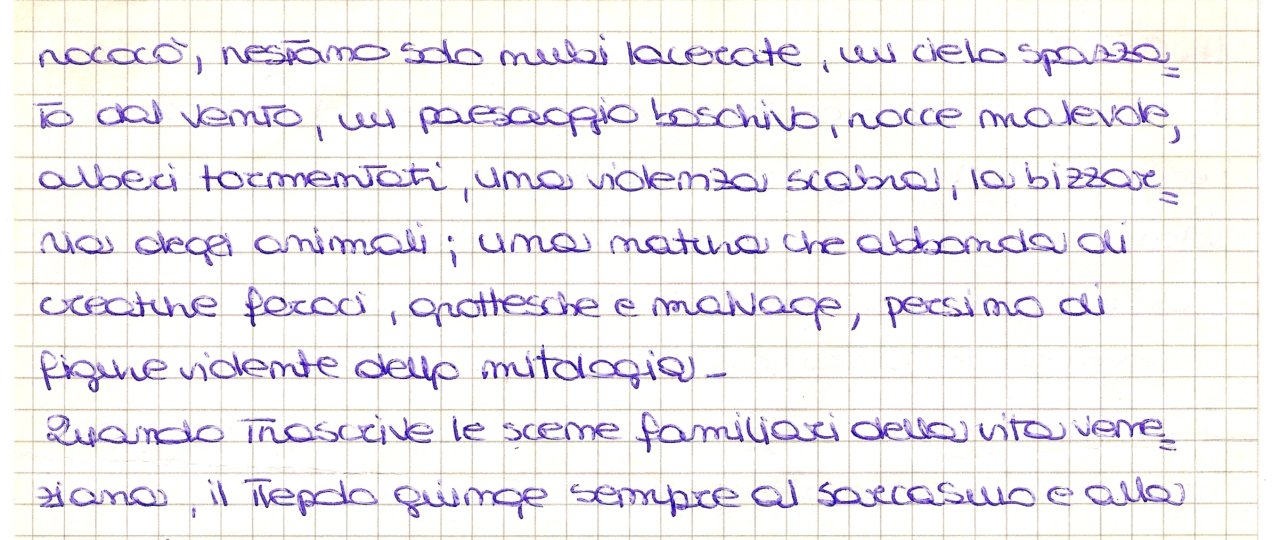 rococò, restano solo nubi lacerate, un cielo spazza=
to dal vento, un paesaggio boschivo, rocce malevole,
alberi tormentati, una violenza scabra, la bizzar=
ria degli animali; una natura che abbonda di
creature feroci, grottesche e malvage, persino di
figure violente della mitologia -
Quando trascrive le scene familiari della vita vene=
ziana, il Tiepolo giunge sempre al sarcasmo e alla